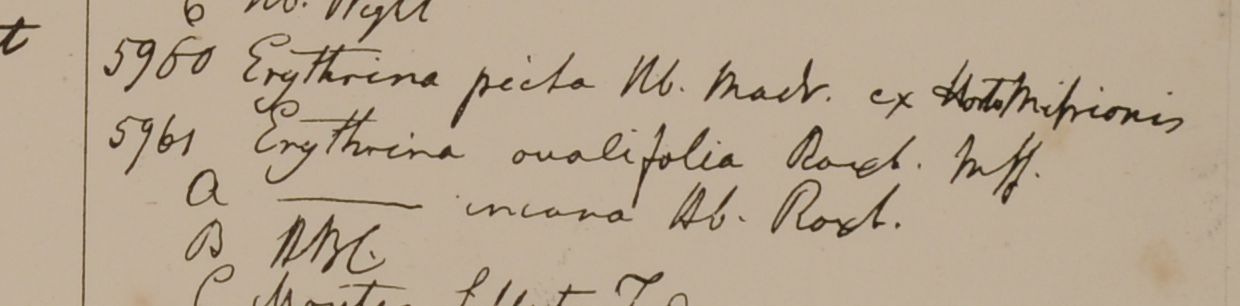 6 Hb. Wight
t
5960 Erythrina picta Hb. Madr. ex Horto Missionis
5961 Erythrina ovalifolia Roxb. Mss.
a ——— incana Hb. Roxb.
B HBC.
C